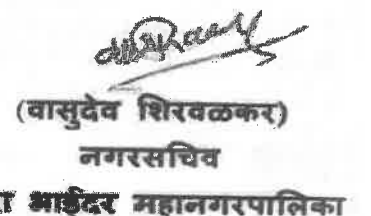 (वासुदेव शिरवळकर)
नगरसचिव
भाईंदर महानगरपालिका